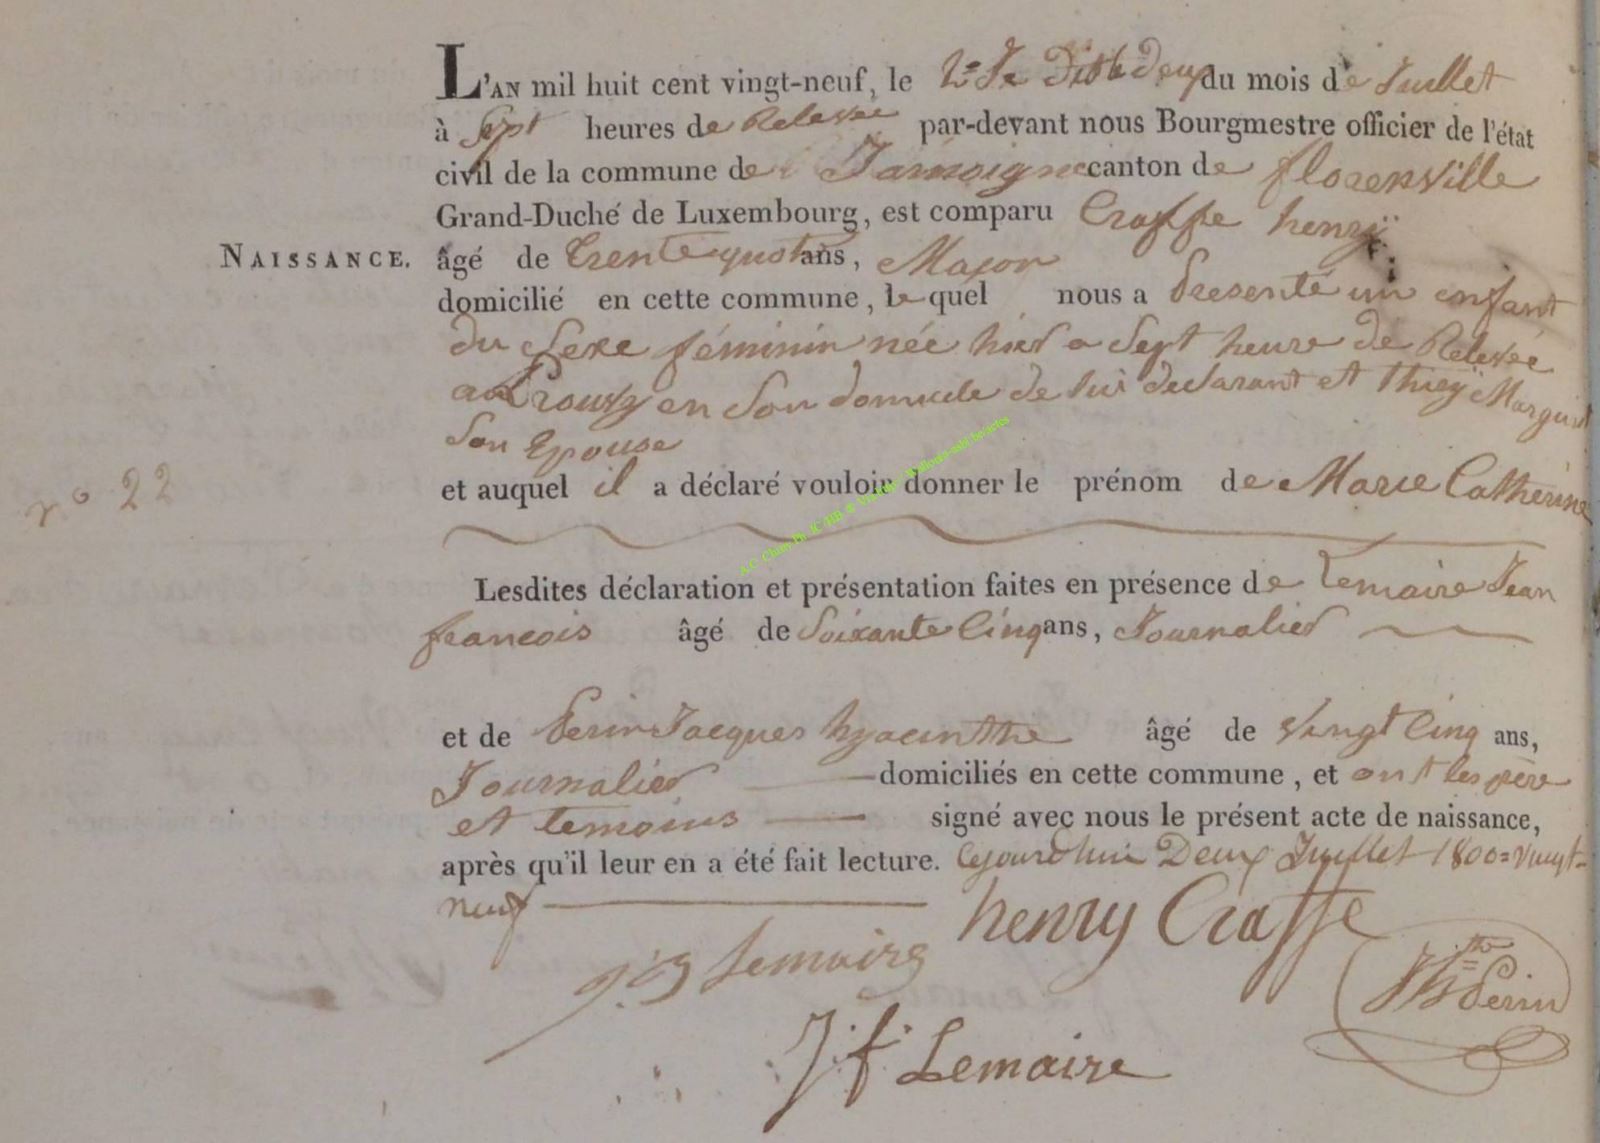 L'AN mil huit cent vingt-neuf, le deux du mois de Juillet
à Sept heures de Relevée par-devant nous Bourgmestre officier de l'état
civil de la commune de Jamoigne canton de florenville
Grand-Duché de Luxembourg, est comparu Craffe henrÿ
NAISSANCE.
âgé de trente quat ans, Major
domicilié en cette commune, lequel nous a présenté un enfant
du Sexe féminin née hier a Sept heure de Relevée
a Prouvy en Son domicile de lui declarant et thirÿ Margueri
Son Epouse
n° 22
et auquel il a déclaré vouloir donner le prénom de Marie Catherine
Lesdites déclaration et présentation faites en présence de Lemaire Jean
francois âgé de Soixante Cinq ans, Journalier
et de Perin Jacques hyacinthe âgé de Vingt Cinq ans,
Journalier domiciliés en cette commune, et ont les père
et temoins signé avec nous le présent acte de naissance,
après qu'il leur en a été fait lecture. Cejourdhui Deux Juillet 1800=vingt-
neuf
henry Craffe
Lemaire
Perin
J.f. Lemaire